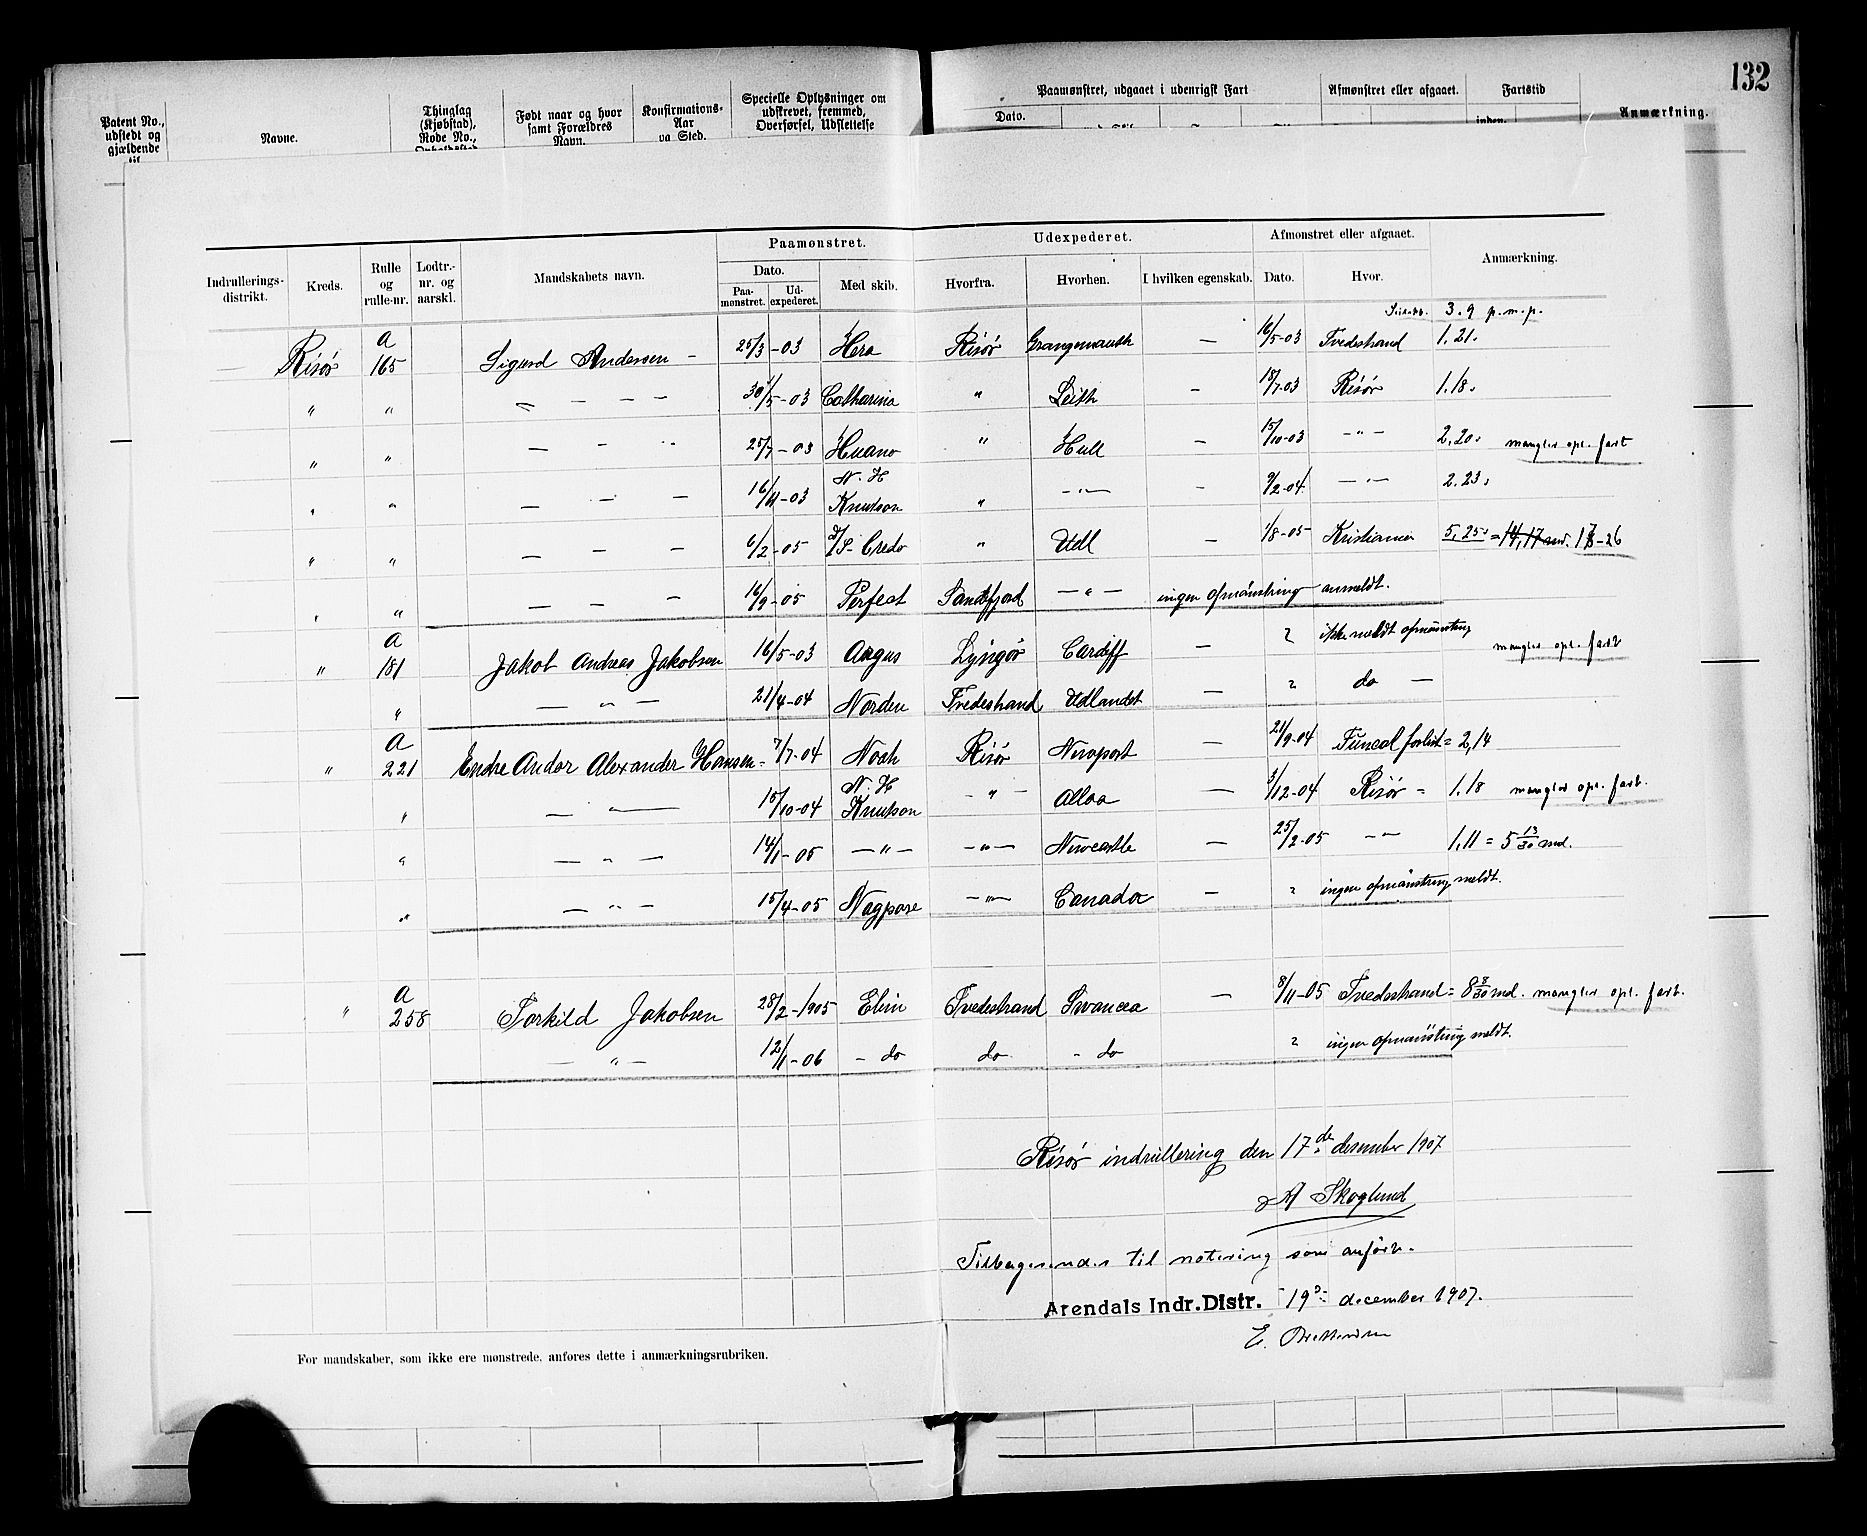 132
Patent No., udstedt og gjældende til
Navne.
Thinglag (Kjøbstad), Rode No.,
Født naar og hvor samt Forældres Navn.
Konfirmations- Aar og Sted.
Specielle Oplysninger om udskrevet, fremmed, Overførsel, Udslettelse
Paamønstret, udgaaet i udenrigsk Fart
Dato.
Afmønstret eller afgaaet.
Fartstid
inden-
Anmærkning.
Paamønstret. Udexpederet. Afmonstret eller afgaaet.
Indrullerings- distrikt. Kreds. Rulle og rulle-nr. Lodtr.- nr. og aarskl. Mandskabets navn. Dato. Paa- mønstret. Ud- expederet. Med skib. Hvorfra. Hvorhen. I hvilken egenskab. Dato. Hvor. Anmærkning.
3.9 p.m.p.
— Risør A 165 Sigurd Andersen — 25/3-03 Hera Risør Grangemauth — 16/5-03 Tvedestrand 1.21.
" " — — — — 30/5-03 Catharina " Leith — 18/7-03 Risør 1.18.
" " — - " 25/7-03 Huano " Hull — 15/10-03 — " — 2.20. mangler opl. fart
" " — — — 16/11-03 N. H Knutson " — " — - 9/2-04 — " — 2.23.
" " — — — 6/2-05 D/S- Credo " Udl — 1/8-05 Kristiania 5.25. = 14,17 md. 17-26
" " — — — 16/9-05 Perfect Sandefjord — " — ingen afmönstring anmeldt.
" A 181 Jakob Andreas Jakobsen 16/5-03 Argus Lyngør Cardiff — ? ikke meldt afmönstring mangler opl. fart
" — " — 21/4-04 Norden Tvedestrand Udlandet — ? do —
" A 221 Endre Andor Alexander Hansen - 7/7-04 Noah Risør Newport — 21/9-04 Funcal forlist = 2,14
" — " — 15/10-04 N. H Knutson — " — Alloa — 3/12-04 Risør = 1.18 mangler opl. fart.
" — " — 14/1-05 — " — — " — Newcastle — 25/2-05 — " — 1,11 = 5 13/30 md.
" — " — 15/4-05 Nagpore — " — Canada — ? ingen afmönstring meldt.
" A 258 Torkild Jakobsen 28/2-1905 Elim Tvedestrand Swancea — 8/11-05 Tvedestrand = 8 8/30 md. mangler opl. fart.
— " — 12/11-06 - do do - do ? ingen afmönstring meldt.
Risør indrullering den 17de desember 1907
A Skoglund
Tilbagesendes til notering som anført.
Arendals Indr.Distr. 19de december 1907.
E.
For mandskaber, som ikke ere mønstrede, anføres dette i anmærkningsrubriken.